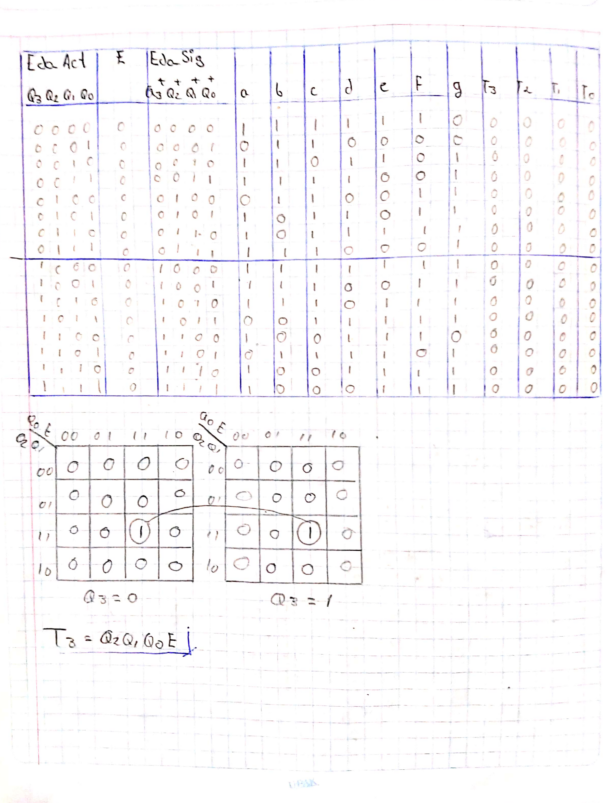 Eda Act E Eda Sig
Q3 Q2 Q1 Q0 Q3+ Q2+ Q1+ Q0+ a b c d e f g T3 T2 T1 T0
0 0 0 0 0 0 0 0 0 1 1 1 1 1 1 0 0 0 0 0
0 0 0 1 0 0 0 0 1 0 1 1 0 0 0 0 0 0 0 0
0 0 1 0 0 0 0 1 0 1 1 0 1 1 0 1 0 0 0 0
0 0 1 1 0 0 0 1 1 1 1 1 1 0 0 1 0 0 0 0
0 1 0 0 0 0 1 0 0 0 1 1 0 0 1 1 0 0 0 0
0 1 0 1 0 0 1 0 1 1 0 1 1 0 1 1 0 0 0 0
0 1 1 0 0 0 1 1 0 1 0 1 1 1 1 1 0 0 0 0
0 1 1 1 0 0 1 1 1 1 1 1 0 0 0 1 0 0 0 0
1 0 0 0 0 1 0 0 0 1 1 1 1 1 1 1 0 0 0 0
1 0 0 1 0 1 0 0 1 1 1 1 0 0 1 1 0 0 0 0
1 0 1 0 0 1 0 1 0 1 1 1 0 1 1 1 0 0 0 0
1 0 1 1 0 1 0 1 1 0 0 1 1 1 1 1 0 0 0 0
1 1 0 0 0 1 1 0 0 1 0 0 1 1 1 0 0 0 0 0
1 1 0 1 0 1 1 0 1 0 1 1 1 1 0 1 0 0 0 0
1 1 1 0 0 1 1 1 0 1 1 0 1 1 1 1 0 0 0 0
1 1 1 1 0 1 1 1 1 1 0 0 0 1 1 1 0 0 0 0
Q0 E Q0 E
Q2 Q1 00 01 11 10 Q2 Q1 00 01 11 10
00 0 0 0 0 00 0 0 0 0
01 0 0 0 0 01 0 0 0 0
11 0 0 1 0 11 0 0 1 0
10 0 0 0 0 10 0 0 0 0
Q3 = 0 Q3 = 1
T3 = Q2 Q1 Q0 E